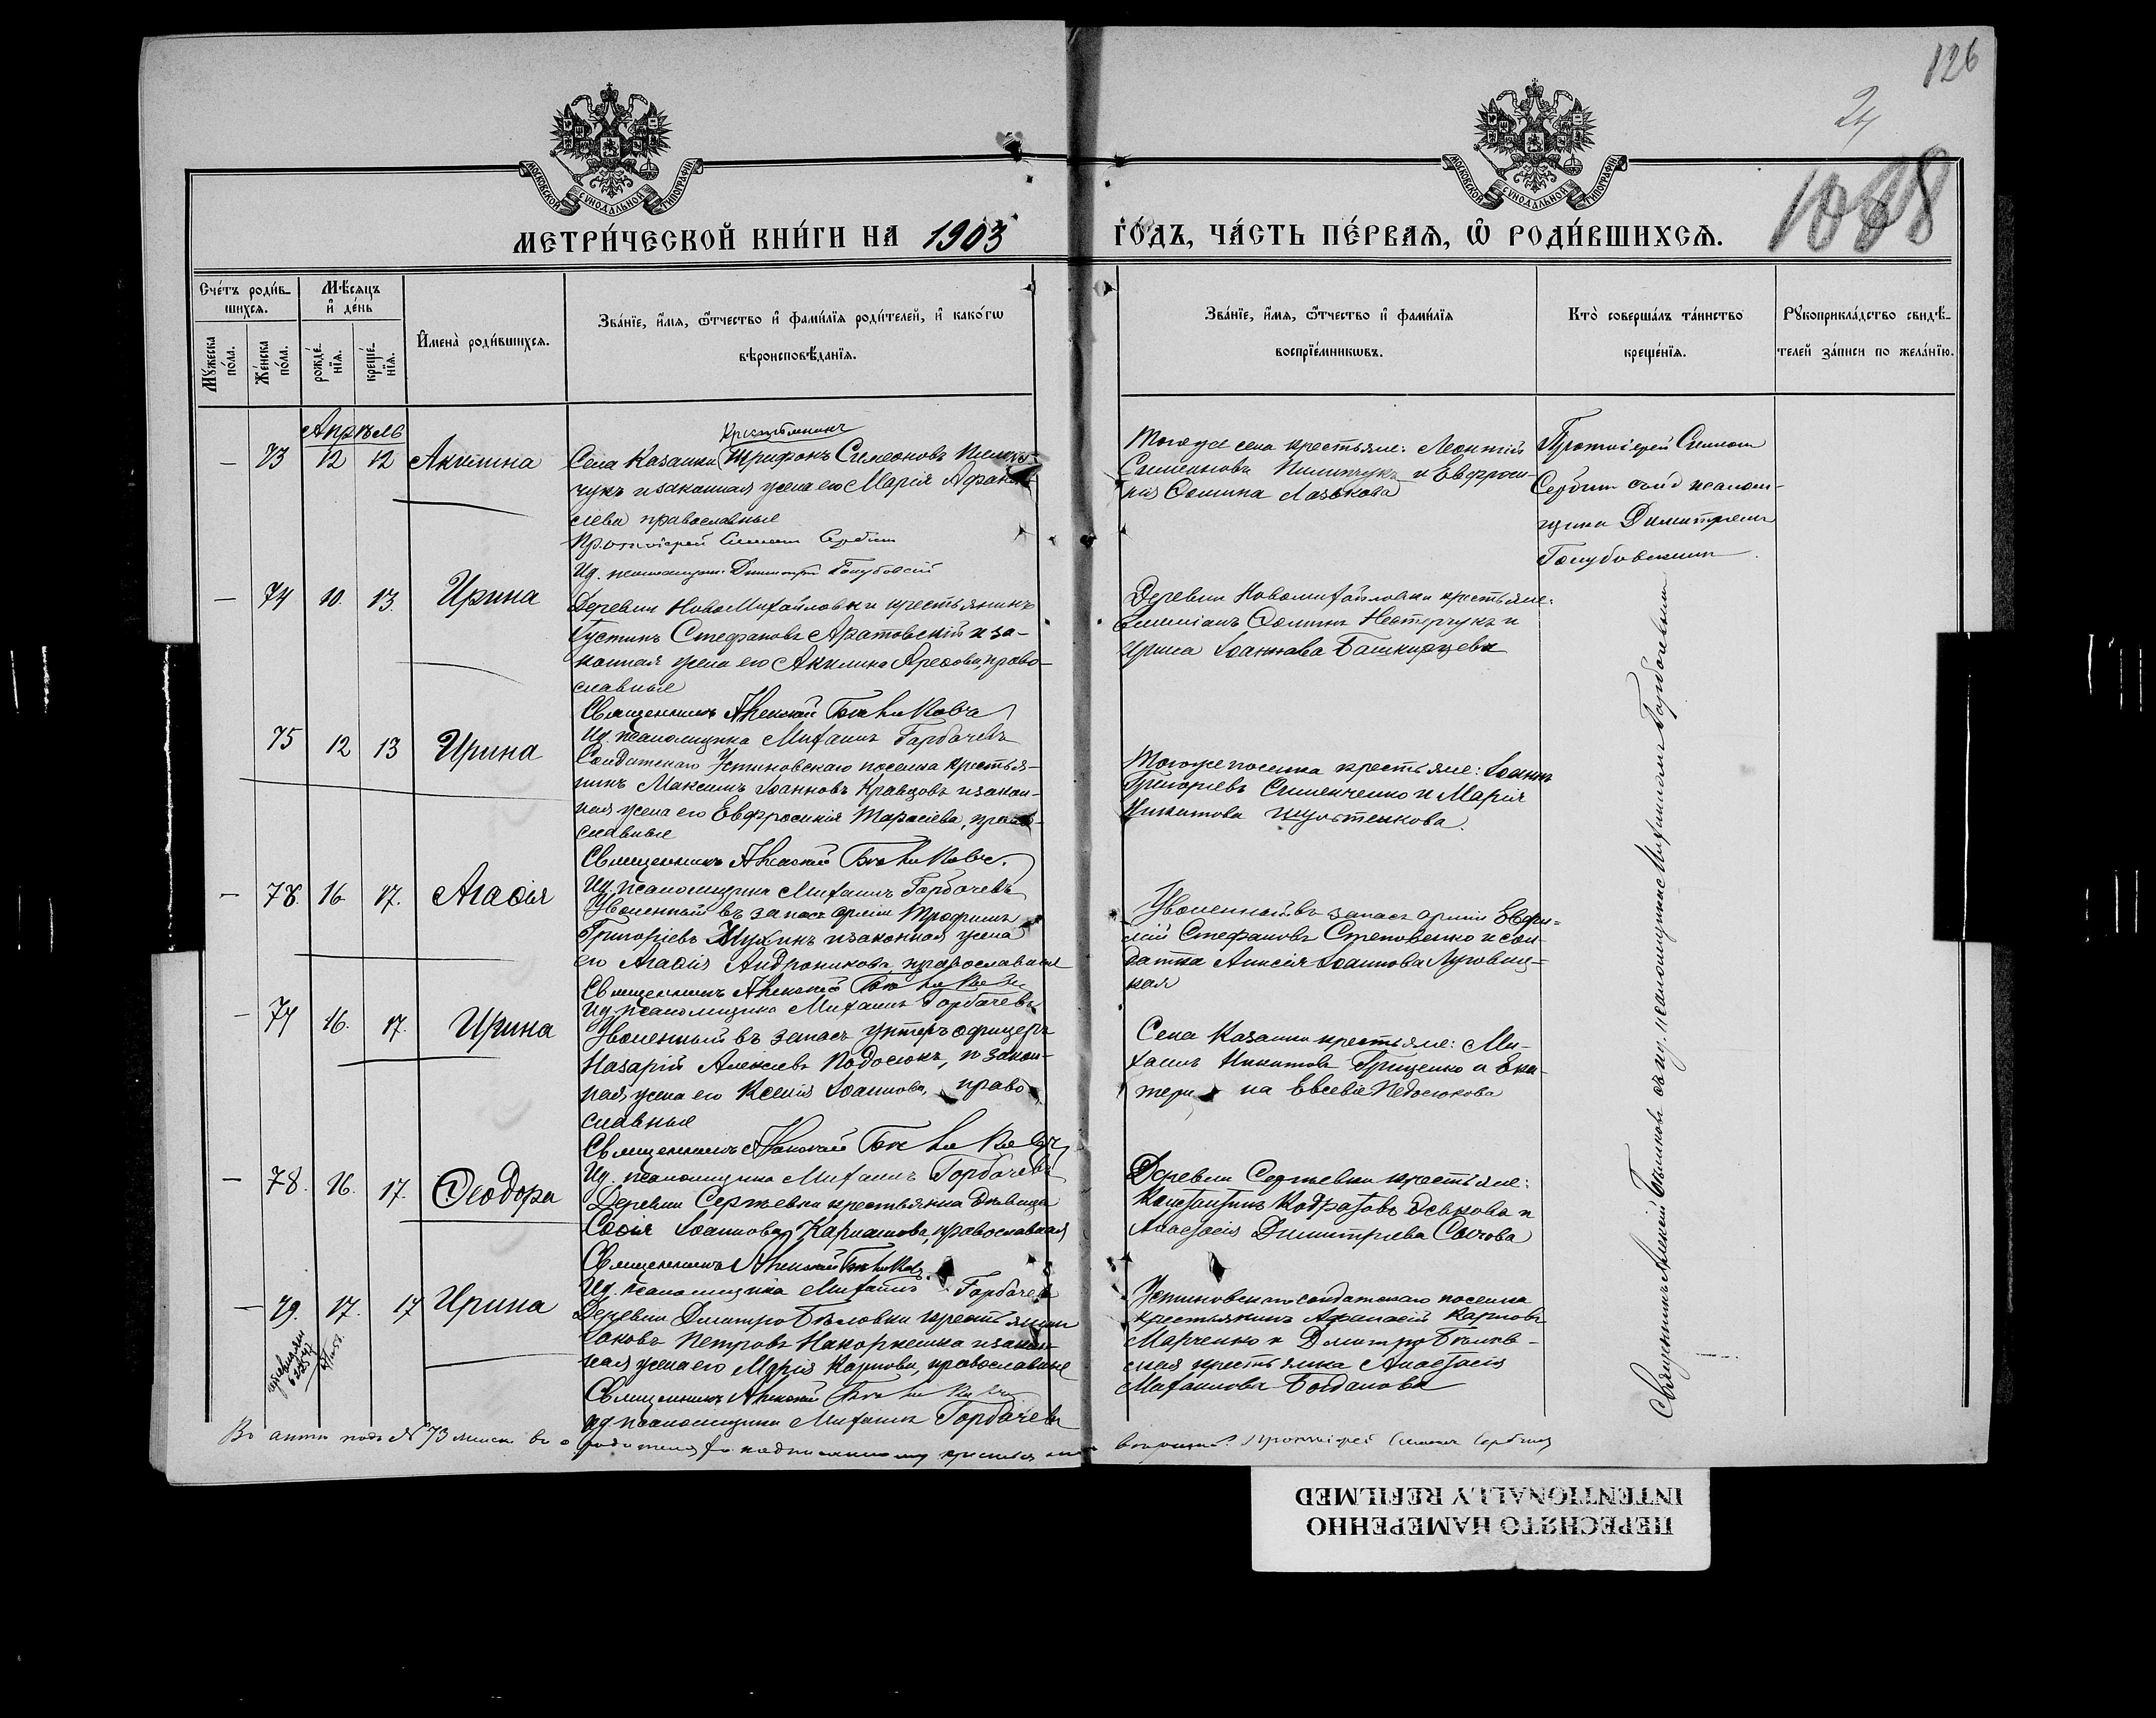 126
24
1088
МОСКОВСКОЙ СѴНОДАЛЬНОЙ ТИПОГРАФІИ
МОСКОВСКОЙ СѴНОДАЛЬНОЙ ТИПОГРАФІИ
МЕТРИ́ЧЕСКОЙ КНИ́ГИ НА 1903 ГО́ДЪ, ЧА́СТЬ ПЕ́РВАѦ, Ѡ РОДИ́ВШИХСѦ.
Счéтъ роди́вшихсѧ.
Мꙋ́жеска по́ла.
Же́нска по́ла.
Мѣ́сѧцъ и де́нь
рожде́нїѧ.
креще́нїѧ.
Имена̀ роди́вшихсѧ.
Зва́нїе, и́мѧ, ѻ҆́тчество и фами́лїѧ роди́телей, и како́гѡ
вѣроисповѣ́данїѧ.
Зва́нїе, и́мѧ, ѻ҆́тчество и фами́лїѧ
воспрїе́мникѡвъ.
Кто̀ соверша́лъ та́инство
креще́нїѧ.
Рꙋкоприкла́дство свидѣ́телей за́писи по жела́нїю.
Апрѣль
— 73 12 12 Акилина
крестьянинъ
Села Казанки Трифонъ Симеоновъ
чукъ и законная жена его Марія
православные
Протоіерей Симеон Сербин
Ид. псаломщика Димитрій Голубовскій
Тогоже села крестьяне: Леонтій
Симеоновъ Пилипчукъ и Евфроси-
нія Ѳомина Лазькова
Протоіерей Симеон
Сербин съ и д псалом-
щика Димитріем
Голубовским.
— 74 10. 13. Ирина
Деревни НовоМихайловки крестьянинъ
Густинъ Стефановъ Аратовскій и за-
конная жена его Акилина, право-
славные
Священникъ Алексій
Ид. псаломщика Михаилъ Горбачевъ
Деревни Новомихайловки крестьяне:
Ѳоминъ Нестерчукъ и
Ирина Іоаннова Башкирцева
75 12 13 Ирина
Солдатскаго Устиновскаго поселка крестья-
нинъ Максимъ Іоанновъ Кравцовъ и закон-
ная жена его Евфросинія Тарасіева, право-
славные
Священникъ Алексій
Ид. псаломщика Михаилъ Горбачевъ
Тогоже поселка крестьяне: Іоаннъ
Григоріевъ Симениенко и Марія
Никитова
— 76. 16. 17. Агаѳія
Уволенный въ запасъ арміи Трофимъ
Григоріевъ Мухинъ и законная жена
его Агаѳія Андроникова, православные
Священникъ Алексій
Ид. псаломщика Михаилъ Горбачевъ
Уволенный въ запасъ арміи Евфи-
мій Стефановъ Степовенко и сол-
датка Анисія Іоаннова Луговиц-
кая
— 77 16. 17. Ирина
Уволенный въ запасъ унтеръ офицеръ
Назарій Алексѣевъ Подосюкъ, и закон-
ная жена его Ксенія Іоаннова, право
славные
Священникъ Алексій
Ид. псаломщика Михаилъ Горбачевъ
Села Казанки крестьяне: Ми-
хаилъ Никитовъ Грищенко и Ека-
тери на Евсевіе Недосюкова
— 78. 16. 17. Ѳеодора
Деревни Сергѣевки крестьянка дѣвица
Софія Іоаннова Карнаухова, православная
Священникъ Алексій
Ид. псаломщика Михаилъ Горбачевъ
Деревни Сергѣевки крестьяне:
Константинъ Кодратовъ Деькова и
Анастасія Димитріева Сычова
— 79. 17. 17 Ирина
Деревни ДмитроБѣловки крестьянинъ
Іаковъ Петровъ Накорнешка и закон-
ная жена его Марія Карпова, православные
Священникъ Алексій
ид псаломщика Михаилъ Горбачевъ
Устиновскаго солдатскаго поселка
крестьянинъ Афанасій Карповъ
Марченко и ДмитроБѣлов-
ская крестьянка Анастасія
Михаилова Богданова
Священникъ Алексій Бѣликовъ съ ид. псаломщика Михаиломъ Горбачевымъ
Въ актѣ подъ № 73 вписан. Протоіерей Симеон Сербин
ПЕРЕСНЯТО НАМЕРЕННО
INTENTIONALLY REFILMED